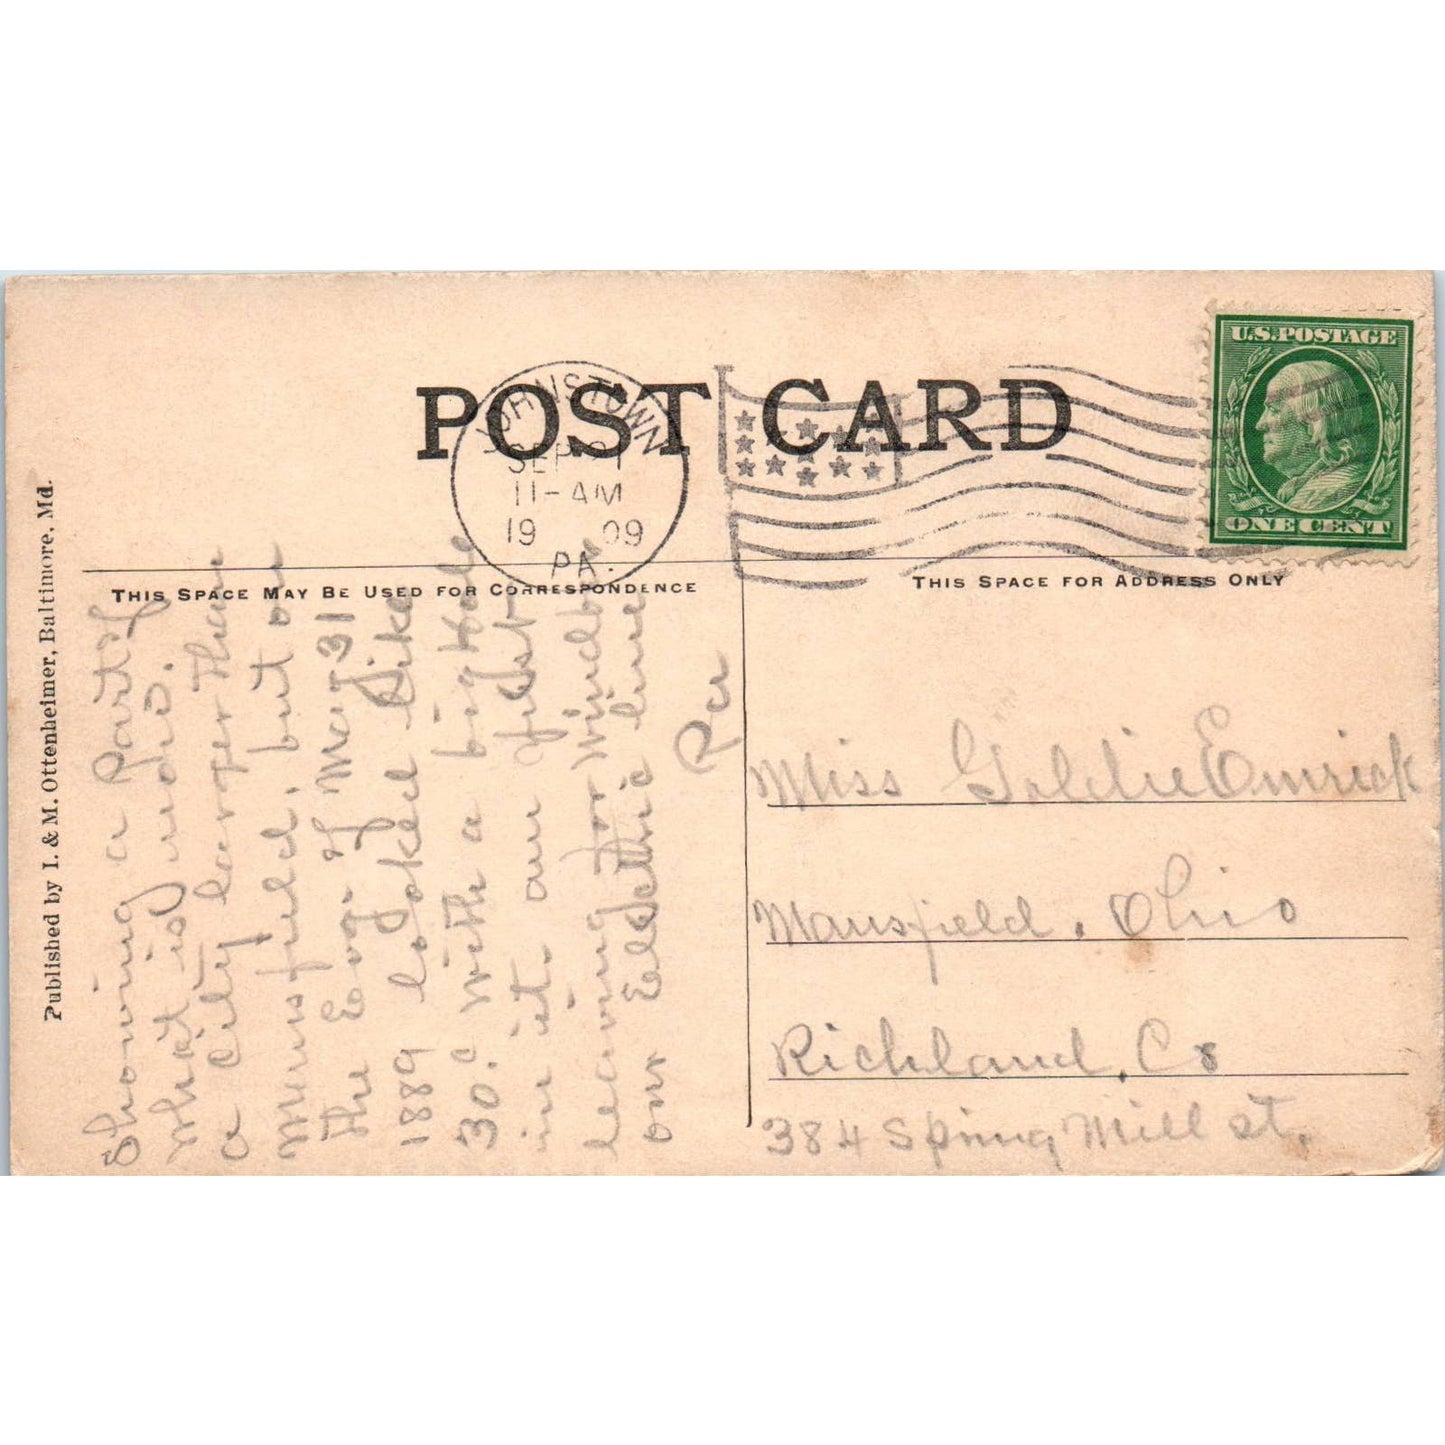 POST CARD
JOHNSTOWN
SEP 21
11-AM
19 09
PA.
U.S. POSTAGE
ONE CENT
THIS SPACE MAY BE USED FOR CORRESPONDENCE
THIS SPACE FOR ADDRESS ONLY
Published by I. & M. Ottenheimer, Baltimore, Md.
Showing a Part of
what is
a City larger than
Mansfield, but on
the Eve. of May 31
1889 looked like
30. with a big hole
in it. am just
leaving for Windber
on line
Pa
Miss Goldie Emrick
Mansfield, Ohio
Richland, Co
384 Spring Mill st.